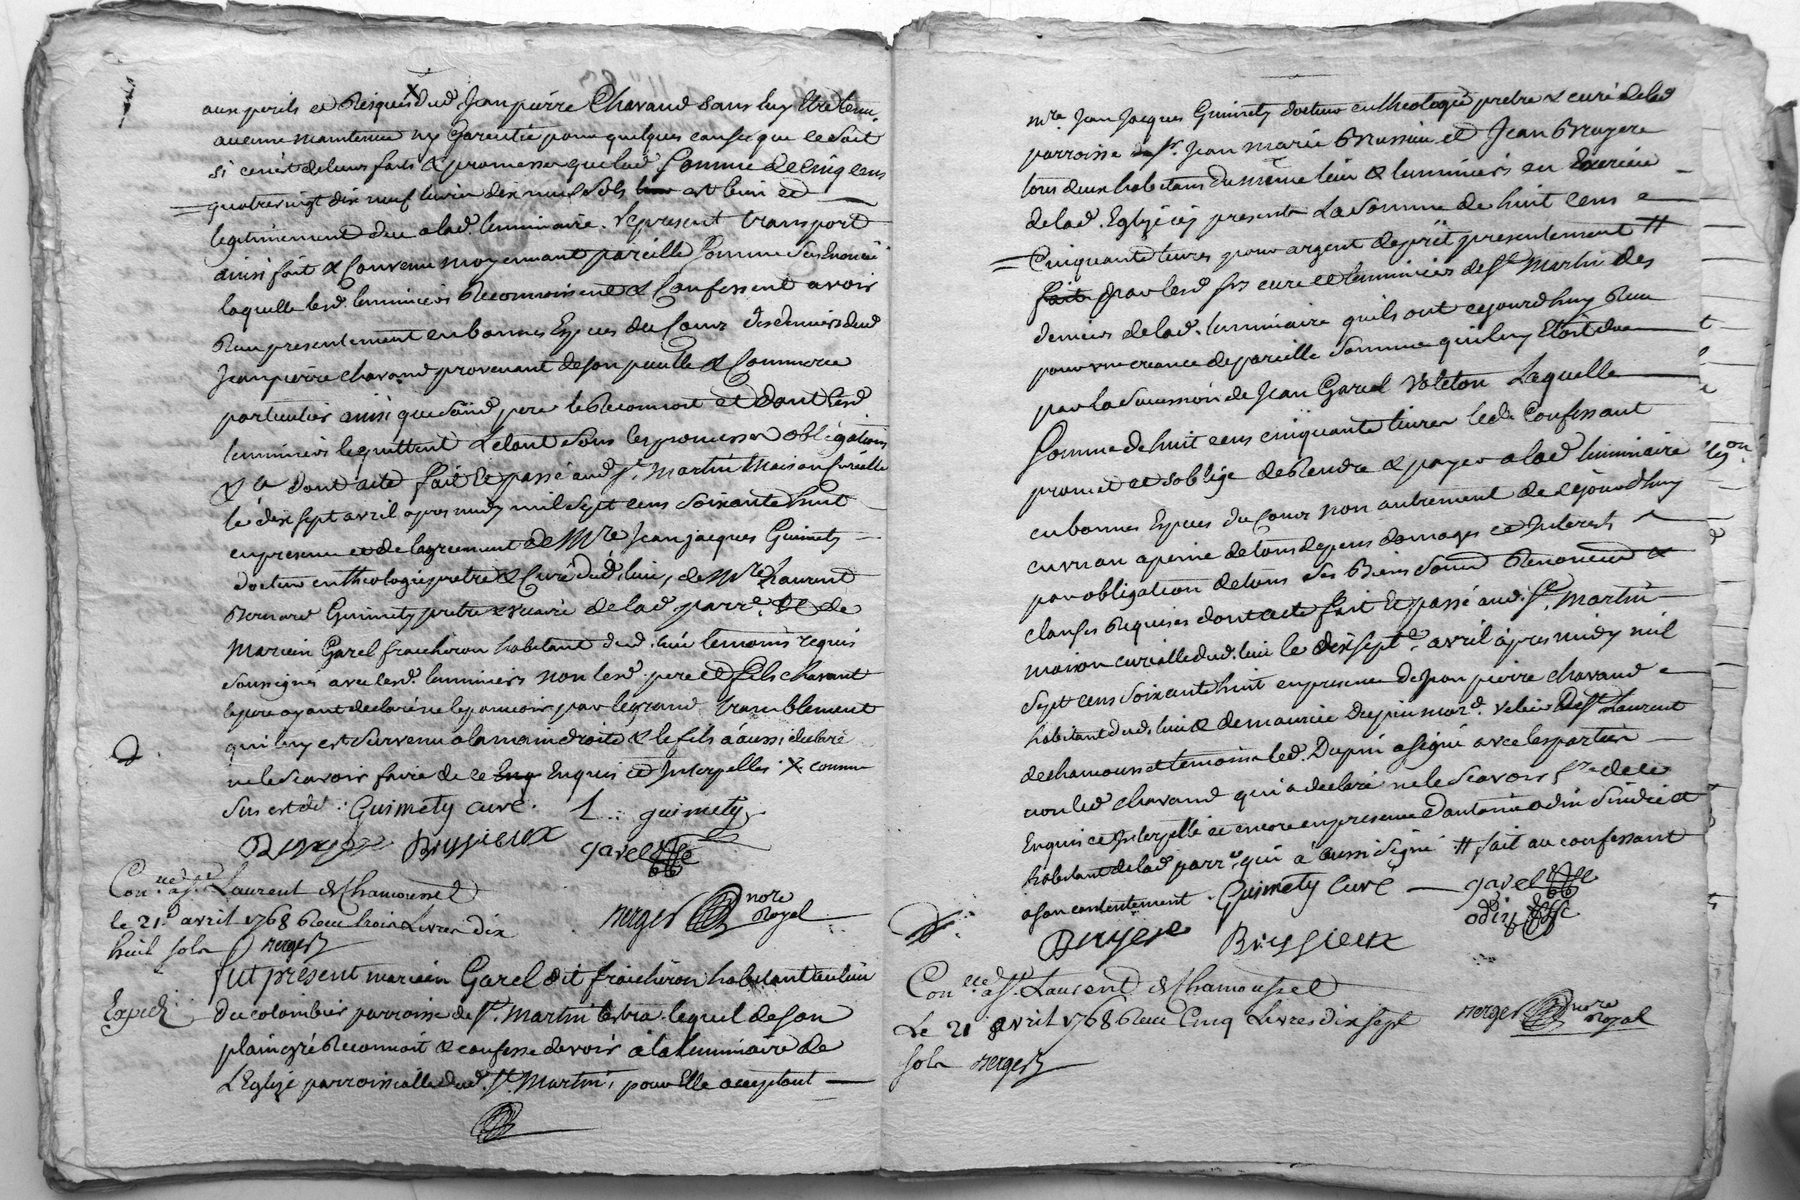 aux perils et Risques dud. Jean pierre Chavand sans luy Etre tenu
aucune maintenue ny Garentie pour quelques causes que ce soit
si ce n'est de leurs faits & promesses que lad. Somme de Cinq cens
quatrevingt dix neuf livres dix neuf sols est bien et
legitimement due a lad. luminaire. le present transport
ainsi fait & Convenu moyennant pareille Somme Sus Enoncée
laquelle lesd. luminiers Reconnoissent & Confessent avoir
Reçu presentement en bonnes Espèces du Cours des deniers dud.
Jean pierre chavand provenant de son pecule & Commerce
particulier ainsi que sond. pere le Reconnoit et dont lesd.
luminiers le quittent & le tout sous les promesses obligations
& a Dont acte fait et passé aud. St. Martin Maison Curialle
le dix sept avril apres midy mil sept cens soixante huit
en presence et de lagrement de Mre Jean jacques Guimety
docteur en theologie pretre & Curé dud. lieu, de Mre Laurent
Bernard Guimety pretre vicaire de lad. parr. & de
Marcien Garel fraicheron habitant dud. lieu temoins requis
soussignés avec lesd. luminiers non lesd. pere et fils chavant
le pere ayant declaré ne le pouvoir par le grand tremblement
qui luy est survenu a la main droite & le fils a aussi declaré
ne le Scavoir faire de ce Enquis et Interpellés X comme
Sus est dit : Guimety curé. L. guimety
Bruyere Brissieux garel
Con.lle a St. Laurent de Chamousset
le 21e avril 1768 Reçu trois Livres dix
huit sols Berger
Berger nore Royal
Fut présent marcien Garel dit fraicheron habitant au lieu
Expedié
du colombier parroisse de St. Martin lequel de son
plain gré Reconnoit & confesse devoir a la luminaire de
L'Eglize parroissialle dud. St. Martin, pour Elle acceptant
mre Jean Jacques Guimety docteur en theologie pretre & curé de lad.
parroisse sr. Jean marie Brissieu et Jean Bruyere
tous deux habitans du même lieu & luminiers en Exercice
de lad. Eglize icy presents La Somme de huit cens
Cinquante livres pour argent de prêt presentement #
par lesd. srs curé et luminiers de St. Martin des
deniers de lad. luminaire qu'ils ont cejourd'huy Reçu
pour une creance de pareille Somme qui luy Etoit due
par la Succession de Jean Garel Voleton Laquelle
Somme de huit cens cinquante livres led. Confessant
promet et s'oblige de Rendre & payer a lad. luminaire
en bonnes Espèces du Cours non autrement de cejourd'huy
en un an a peine de tous depens domages et Interests
par obligation de tous Ses Biens Renonceant &
clauses Requises dont acte fait Et passé aud. St. Martin
maison curialle dud. lieu le dix sept. avril après midy mil
Sept cens soixante huit en presence de Jean pierre chavand
habitant dud. lieu & de maurice Dupin mard. de St. Laurent
de chamousset temoins led. Dupin a signé avec les parties
non led. chavand qui a declaré ne le Scavoir fre de ce
Enquis et Interpellé et encore en presence d'antoine odin Sindic et
habitant de lad. parr. qui a aussi signé # fait au confessant
a son contentement. Guimety Curé garel
Bruyere Brissieux odin
Con.lle a St. Laurent de Chamousset
Le 21 avril 1768 Reçu Cinq Livres dix sept
sols Berger
Berger nore Royal